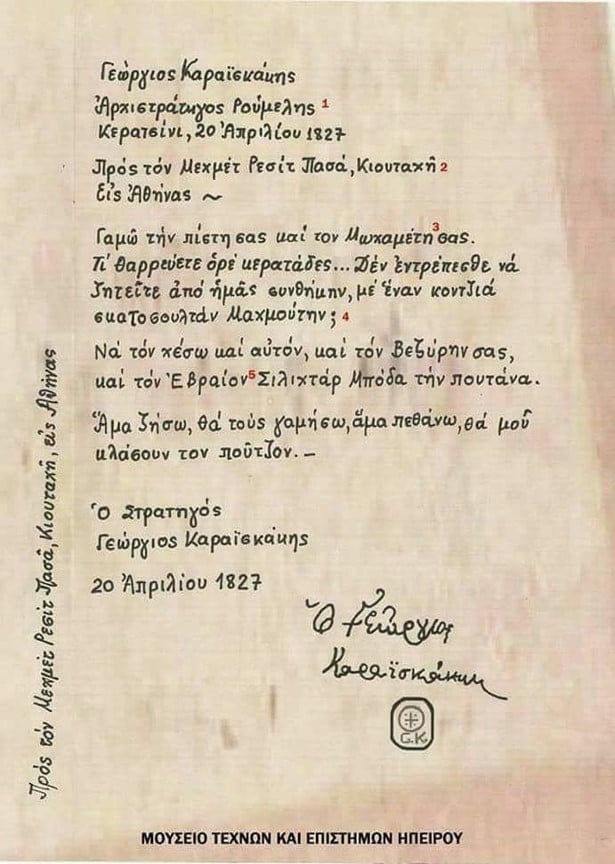 Γεώργιος Καραϊσκάκης
Ἀρχιστράτηγος Ρούμελης 1
Κερατσίνι, 20 Ἀπριλίου 1827
Πρός τόν Μεχμέτ Ρεσίτ Πασά, Κιουταχῆ 2
Εἰς Ἀθήνας ~
Γαμῶ τήν πίστη σας καί τον Μωχαμέτη 3 σας.
Τι' θαρρεύετε ὁρέ κερατάδες... Δέν ἐντρέπεσθε νά
ζητεῖτε ἀπό ἡμᾶς συνθήκην, μέ ἕναν κοντζιά
σκατοσουλτάν Μαχμούτην; 4
Νά τόν χέσω καί αὐτόν, καί τόν Βεζύρην σας,
καί τόν Ἑβραίον 5 Σιλιχτάρ Μπόδα τήν πουτάνα.
Ἅμα ζήσω, θά τούς γαμήσω, ἅμα πεθάνω, θά μοῦ
κλάσουν τον ποῦτζον. –
Ὁ Στρατηγός
Γεώργιος Καραϊσκάκης
20 Ἀπριλίου 1827
Ὁ Γεώργιος
Καραϊσκάκης
G.K.
Πρός τόν Μεχμέτ Ρεσίτ Πασᾶ, Κιουταχῆ, εἰς Ἀθήνας
ΜΟΥΣΕΙΟ ΤΕΧΝΩΝ ΚΑΙ ΕΠΙΣΤΗΜΩΝ ΗΠΕΙΡΟΥ